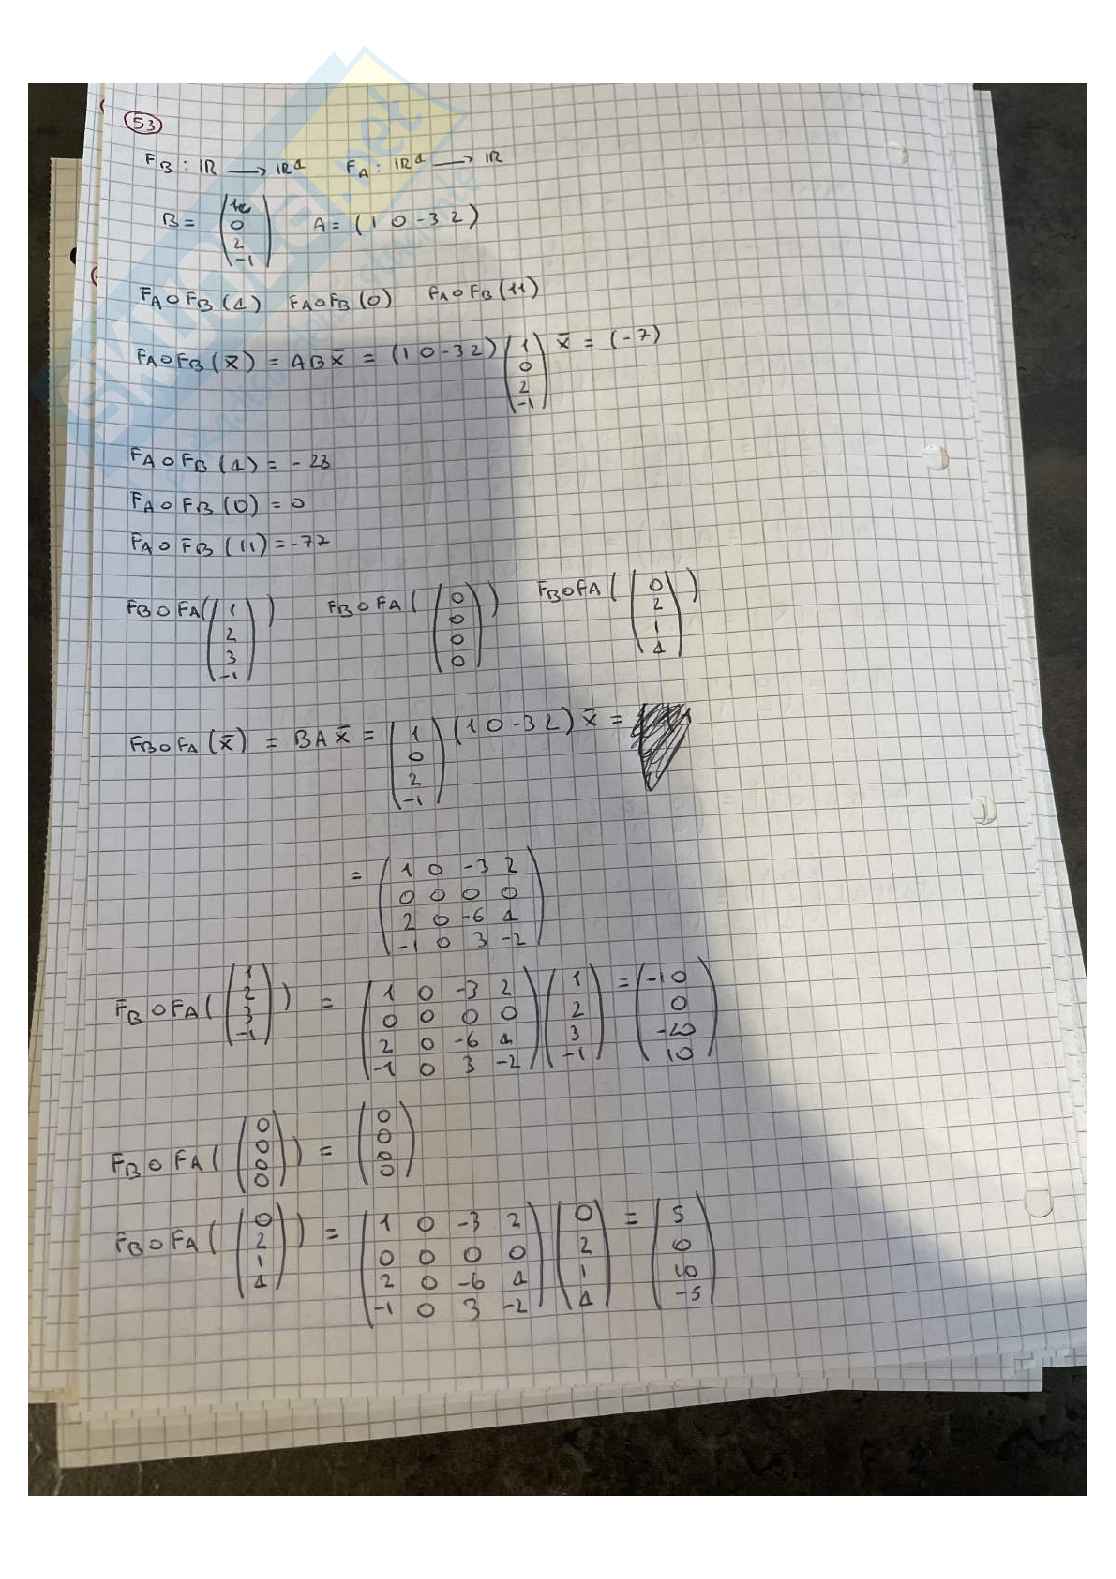 53
F_B : ℝ → ℝ⁴   F_A : ℝ⁴ → ℝ
B = (1 0 2 -1)   A = (1 0 -3 2)
F_A∘F_B(4)   F_A∘F_B(0)   F_A∘F_B(11)
F_A∘F_B(x̄) = ABx̄ = (1 0 -3 2) (1 0 2 -1) x̄ = (-7)
F_A∘F_B(4) = -28
F_A∘F_B(0) = 0
F_A∘F_B(11) = -77
F_B∘F_A((1 2 3 -1))   F_B∘F_A((0 0 0 0))   F_B∘F_A((0 2 1 4))
F_B∘F_A(x̄) = BAx̄ = (1 0 2 -1) (1 0 -3 2) x̄ =
= (1 0 -3 2
0 0 0 0
2 0 -6 4
-1 0 3 -2)
F_B∘F_A((1 2 3 -1)) = (1 0 -3 2
0 0 0 0
2 0 -6 4
-1 0 3 -2) (1 2 3 -1) = (-10 0 -20 10)
F_B∘F_A((0 0 0 0)) = (0 0 0 0)
F_B∘F_A((0 2 1 4)) = (1 0 -3 2
0 0 0 0
2 0 -6 4
-1 0 3 -2) (0 2 1 4) = (5 0 10 -5)